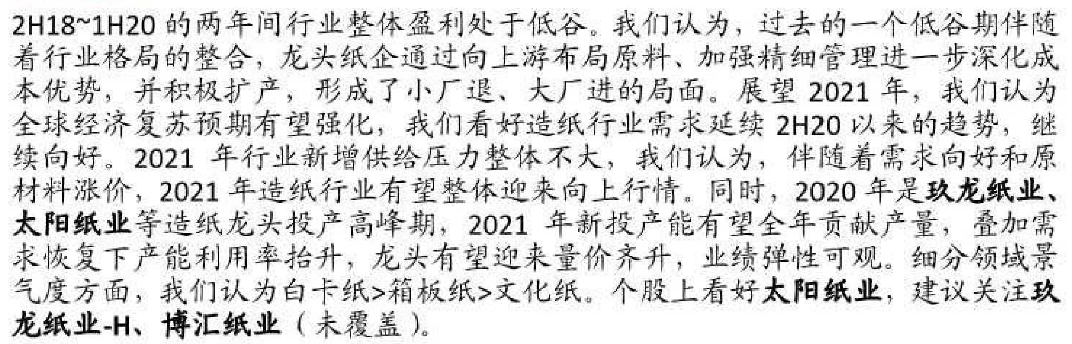 2H18~1H20 的两年间行业整体盈利处于低谷。我们认为，过去的一个低谷期伴随
着行业格局的整合，龙头纸企通过向上游布局原料、加强精细管理进一步深化成
本优势，并积极扩产，形成了小厂退、大厂进的局面。展望 2021 年，我们认为
全球经济复苏预期有望强化，我们看好造纸行业需求延续 2H20 以来的趋势，继
续向好。2021 年行业新增供给压力整体不大，我们认为，伴随着需求向好和原
材料涨价，2021 年造纸行业有望整体迎来向上行情。同时，2020 年是玖龙纸业、
太阳纸业等造纸龙头投产高峰期，2021 年新投产能有望全年贡献产量，叠加需
求恢复下产能利用率抬升，龙头有望迎来量价齐升，业绩弹性可观。细分领域景
气度方面，我们认为白卡纸>箱板纸>文化纸。个股上看好太阳纸业，建议关注玖
龙纸业-H、博汇纸业（未覆盖）。